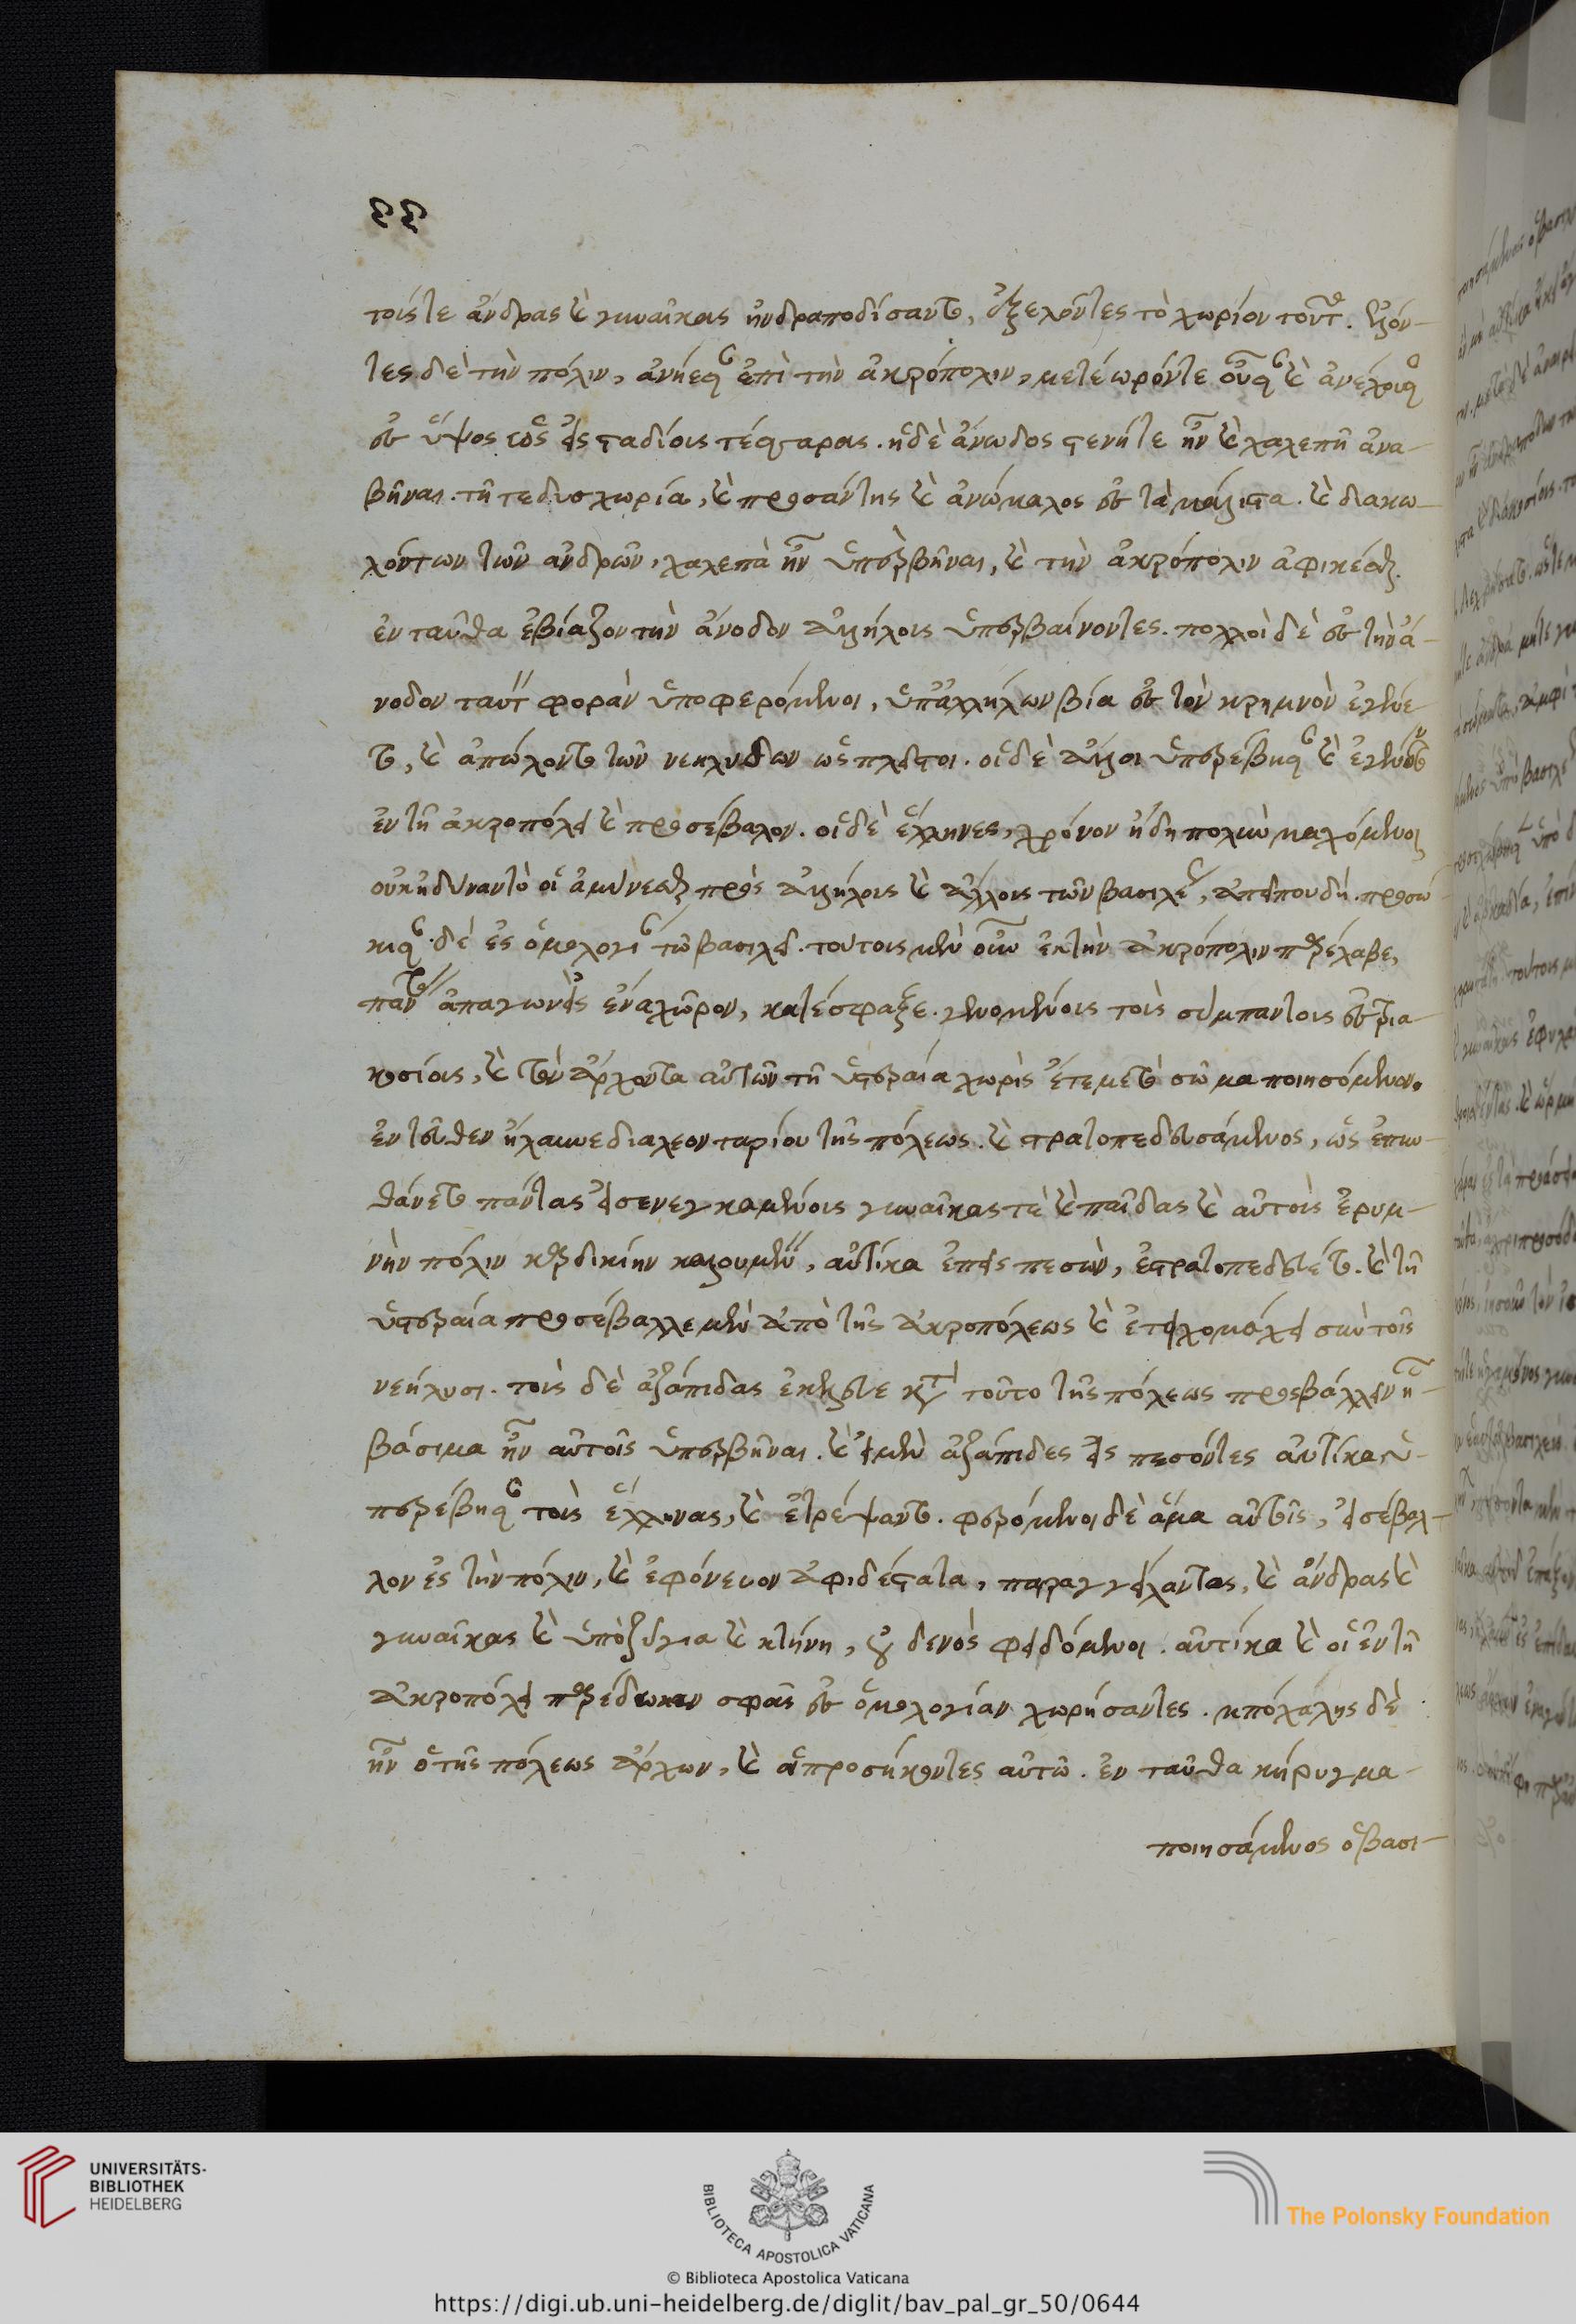 τούς τε ἄνδρας καὶ γυναῖκας ἠνδραποδίσαντο, ἐξελόντες τὸ χωρίον τοῦτο. ἑλόν-
τες δὲ τὴν πόλιν, ἀνήεσαν ἐπὶ τὴν ἀκρόπολιν, μετέωρόν τε οὖσαν καὶ ἀνέχουσαν
ἐς ὕψος ὡς εἰς σταδίους τέσσαρας. ἡ δὲ ἄνωδος στενή τε ἦν καὶ χαλεπὴ ἀνα-
βῆναι. τῇ τε δυσχωρία, καὶ προσάντης καὶ ἀνώμαλος ἐς τὰ μάλιστα. καὶ διακω-
λόντων τῶν ἀνδρῶν, χαλεπὰ ἦν ὑπερβῆναι, καὶ τὴν ἀκρόπολιν ἀφικέσθαι.
ἐν ταῦθα ἐβίαζον τὴν ἄνοδον ἀλλήλους ὑπερβαίνοντες. πολλοὶ δὲ ἐς τὴν ἄ-
νοδον ταύτην φορὰν ὑποφερόμενοι, ὑπ' ἀλλήλων βία ἐς τὸν κρημνὸν ἐγένε-
το, καὶ ἀπώλοντο τῶν νεηλύδων ὡς πλεῖστοι. οἱ δὲ ἄλλοι ὑπερέβησαν καὶ ἐγένοντο
ἐν τῇ ἀκροπόλει καὶ προσέβαλον. οἱ δὲ ἕλληνες, χρόνον ἤδη πολὺν μαχόμενοι
οὐκ ἠδύναντο οἱ ἀμύνεσθαι πρὸς ἀλλήλους καὶ ἄλλους τῶν βασιλέως, ἀπειπουδή. προσω
κησαν δὲ ἐς ὁμολογίαν τῶ βασιλεῖ. τούτους μὲν οὖν ἐκ τὴν ἀκρόπολιν παρέλαβε,
πάντας ἀπαγωνεῖς ἕνα χῶρον, κατέσφαξε. γενομένους τοὺς σύμπαντας ἐς τρια
κοσίους, καὶ τὸν ἄρχοντα αὐτῶν τῇ ὑστεραία χωρὶς ἔτεμε τὸ σῶμα ποιησόμενον.
ἐντεῦθεν ἤλαυνε διαλεονταρίου τῆς πόλεως. καὶ στρατοπεδευσάμενος, ὡς ἐπυν
θάνετο πάντας εἰσενεγκαμένους γυναῖκας τὲ καὶ παῖδας καὶ αὐτοὺς ἐρυμ-
νὴν πόλιν καρδικίην καλουμένην, αὐτίκα ἐπεισπεσὼν, ἐστρατοπεδεύετο. καὶ τῇ
ὑστεραία προσέβαλλε μὲν ἀπὸ τῆς ἀκροπόλεως καὶ ἐτειχομάχει σὺν τοῖς
νεήλυσι. τοὺς δὲ ἀζάπιδας ἐκέλευε κατὰ τοῦτο τῆς πόλεως προσβάλλειν ἧ
βάσιμα ἦν αὐτοῖς ὑπερβῆναι. καὶ οἱ μὲν ἀζάπιδες εἰσπεσόντες αὐτίκα ὑ-
περέβησαν τοὺς ἕλληνας, καὶ ἐτρέψαντο. φερόμενοι δὲ ἅμα αὐτοῖς, εἰσέβαλ-
λον ἐς τὴν πόλιν, καὶ ἐφόνευον ἀφιδέστατα, παραγγείλαντας, καὶ ἄνδρας καὶ
γυναῖκας καὶ ὑποζύγια καὶ κτήνη, οὐδενὸς φειδόμενοι. αὐτίκα καὶ οἱ ἐν τῇ
ἀκροπόλει παρέδωκαν σφᾶς ἐς ὁμολογίαν χωρήσαντες. μπόχαλης δὲ
ἦν ὁ τῆς πόλεως ἄρχων, καὶ οἱ προσήκοντες αὐτῶ. ἐν ταῦθα κήρυγμα
ποιησάμενος ὁ βασι-
UNIVERSITÄTS-
BIBLIOTHEK
HEIDELBERG
BIBLIOTECA APOSTOLICA VATICANA
The Polonsky Foundation
© Biblioteca Apostolica Vaticana
https://digi.ub.uni-heidelberg.de/diglit/bav_pal_gr_50/0644